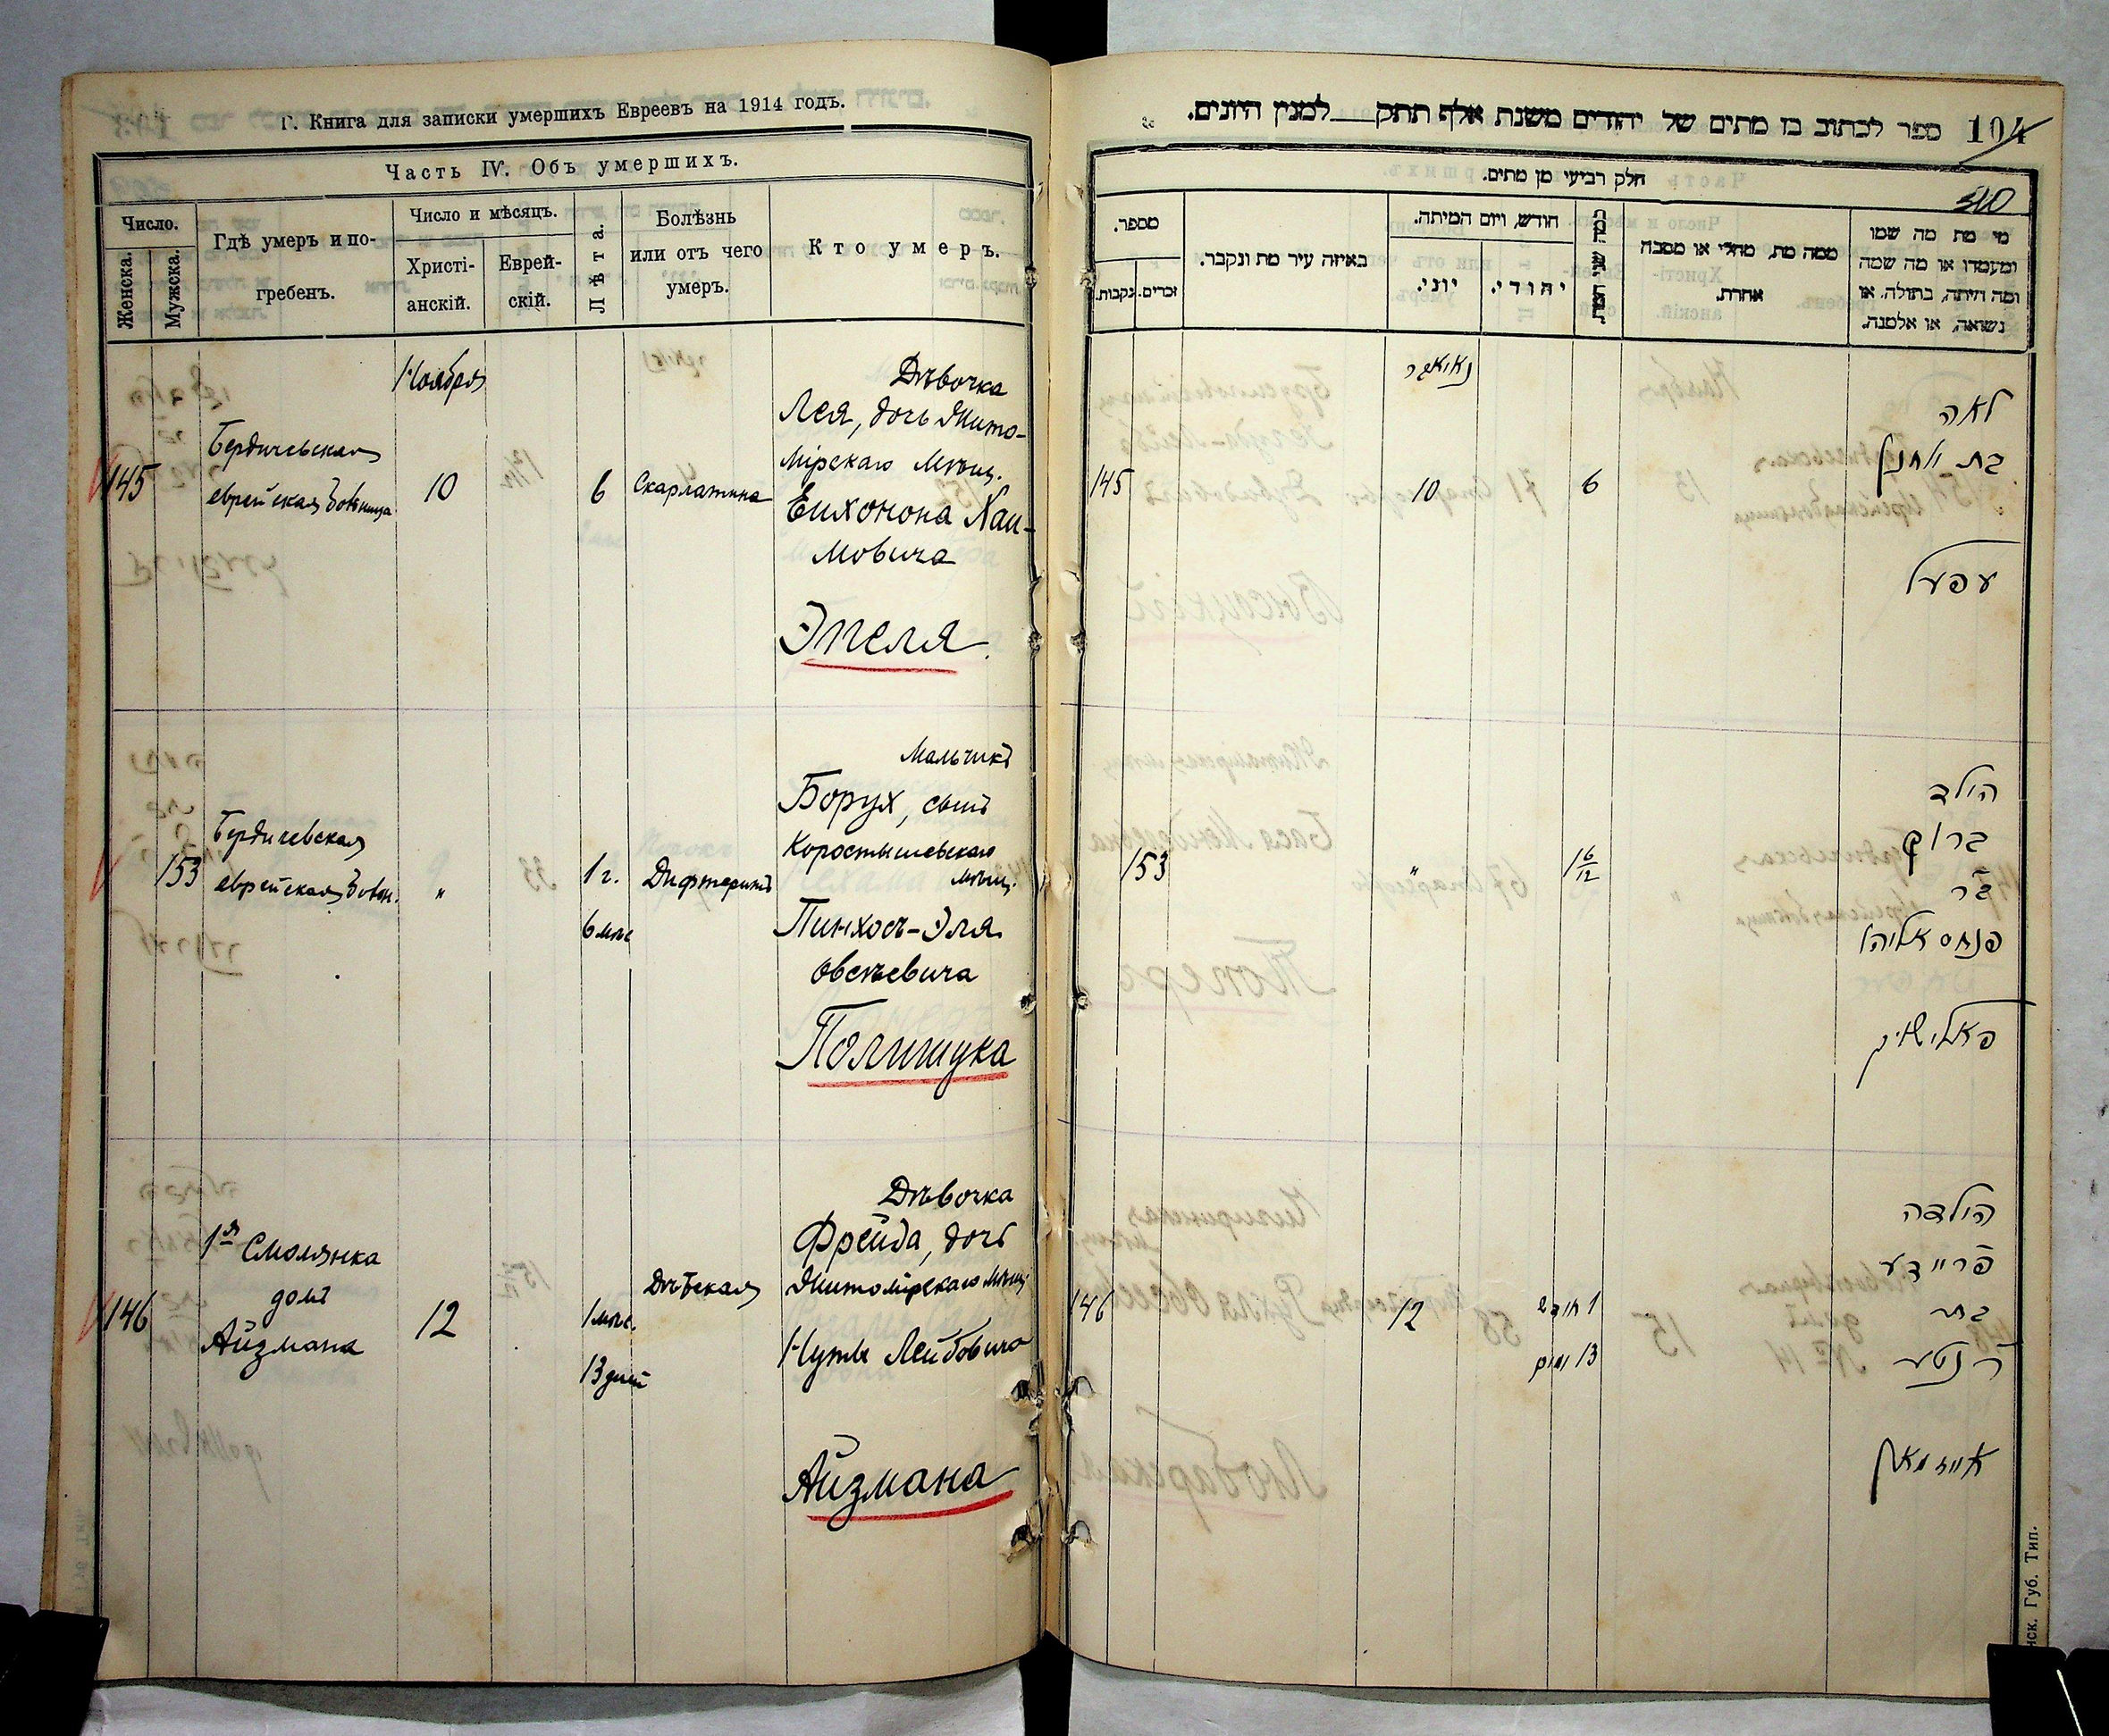 Г. Книга для записки умершихъ Евреевъ на 1914 годъ.
Часть IV. Объ умершихъ.
Число.
Женска.
Мужска.
Гдѣ умеръ и по-
гребенъ.
Число и мѣсяцъ.
Христі-
анскій.
Еврей-
скій.
Лѣта.
Болѣзнь
или отъ чего
умеръ.
Кто умеръ.
Ноября
145
Бердичевская
еврейская
10
6
Скарлатина
Дѣвочка
Лея, дочь Жито-
мірскаго мѣщ.
Хаи-
мовича
Эпеля
153
Бердичевская
еврейская
"
1 г.
6 мѣс
Дифтеритъ
Мальчикъ
Борух, сынъ
Коростышевскаго
мѣщ.
Пинхосъ-Эля
Овсѣевича
Полищука
146
1я Смолянка
домъ
Айзмана
12
1 мѣс.
13 дней
Дѣтская
Дѣвочка
Фрейда, дочь
Житомірскаго мѣщ.
Нуты Лейбовича
Айзмана
ספר לכתוב בו מתים של יהודים משנת אלף תתק למנין היונים.
104
חלק רביעי מן מתים.
מספר.
נקבות.
זכרים.
באיזה עיר מת ונקבר.
חודש, ויום המיתה.
יוני.
יהודי.
ממה מת, מחלי או מסבה
אחרת.
מי מת מה שמו
ומעמדו או מה שמה
ומה היתה, בתולה, או
נשואה, או אלמנה.
145
10
6
לאה
בת
עפעל
153
"
1 6/12
הילד
ברוך
בר
פנחס אליהו
פאלישוק
146
12
1 חודש
13 יום
הילדה
פריידע
בת
ר נטע
אייזמאן
нск. Губ. Тип.